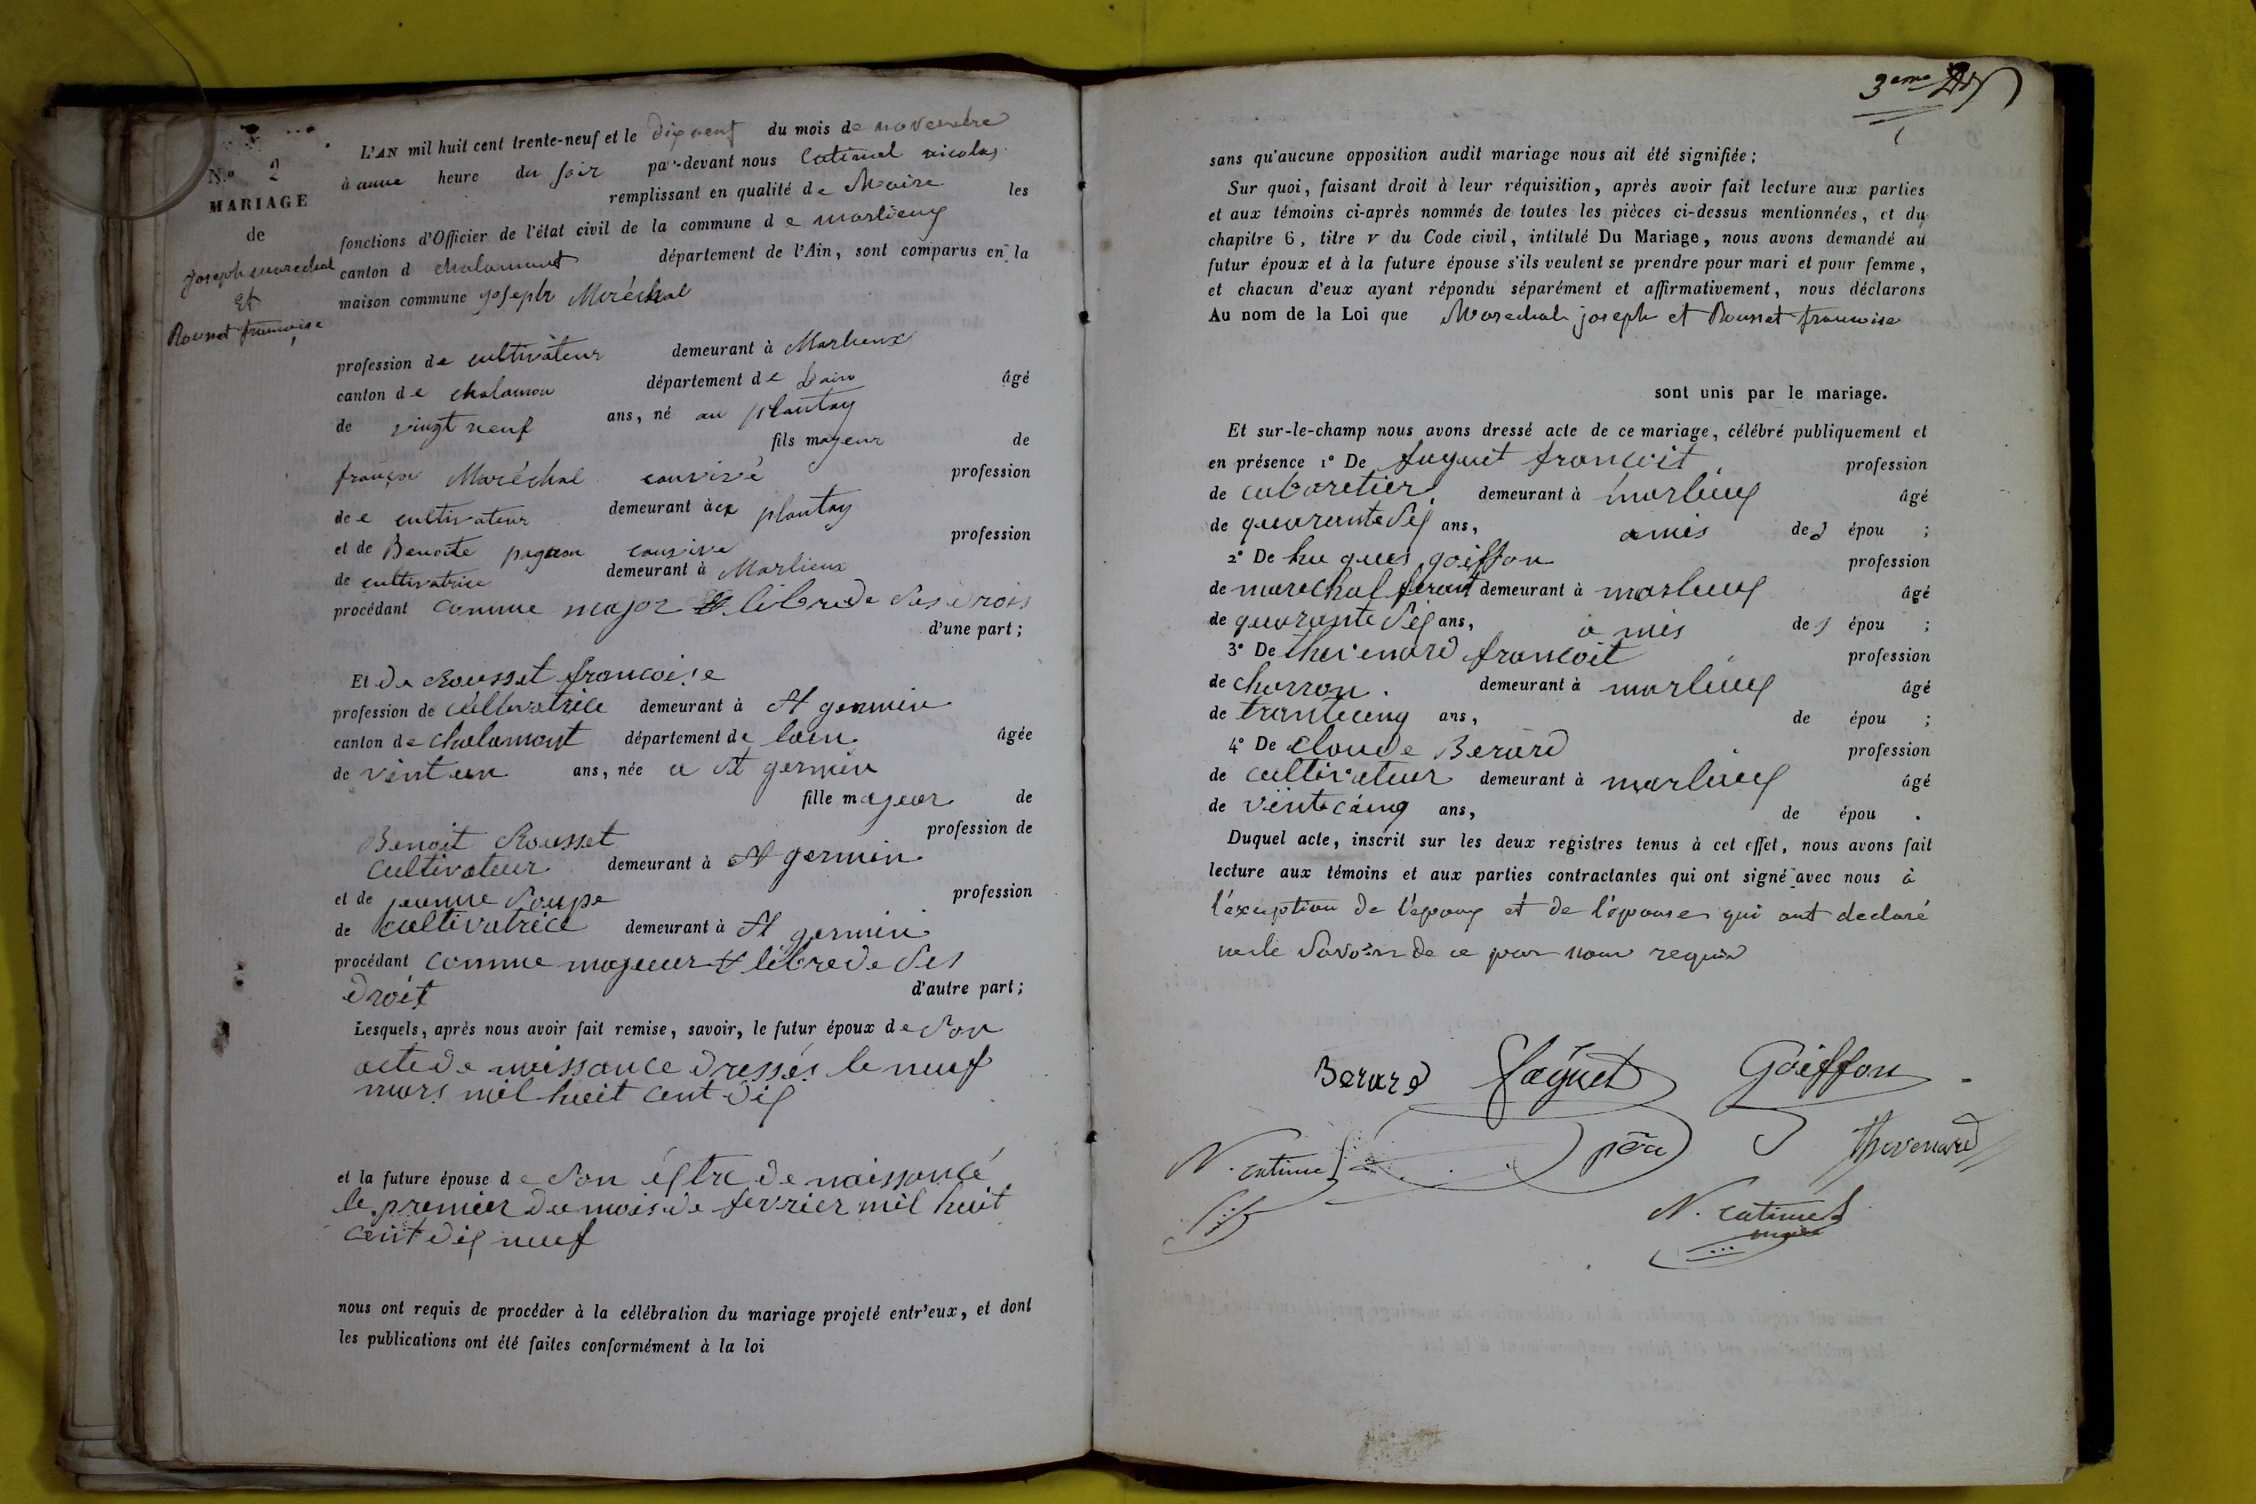 N.º 2
MARIAGE
de
Joseph marechal
Et
Rousset francoise
L'AN mil huit cent trente-neuf et le dix neuf du mois de novembre
à une heure du soir par-devant nous Catimel nicolas
remplissant en qualité de Maire les
fonctions d'Officier de l'état civil de la commune de marlieux
canton d chalamont département de l'Ain, sont comparus en la
maison commune joseph Maréchal
profession de cultivateur demeurant à Marlieux
canton de chalamon département de Lain âgé
de vingt neuf ans, né au plantay
fils majeur de
françoi Maréchal profession
de cultivateur demeurant à plantay
et de Benoite profession
de cultivatrice demeurant à Marlieux
procédant comme major & libre de ses drois
d'une part;
Et de Rousset francoise
profession de cultivatrice demeurant à St germin
canton de chalamont département de lain âgée
de vint un ans, née a St germin
fille majeur de
Benoit Rousset profession de
cultivateur demeurant à St germin
et de jeanne Soupe profession
de cultivatrice demeurant à St germin
procédant comme majeur & libre de ses
droit d'autre part;
Lesquels, après nous avoir fait remise, savoir, le futur époux de son
acte de naissance dressés le neuf
mars mil huit cent dix
et la future épouse de son de naissance
le premier du mois de fevrier mil huit
cent dix neuf
nous ont requis de procéder à la célébration du mariage projeté entr'eux, et dont
les publications ont été faites conformément à la loi
3eme
sans qu'aucune opposition audit mariage nous ait été signifiée;
Sur quoi, faisant droit à leur réquisition, après avoir fait lecture aux parties
et aux témoins ci-après nommés de toutes les pièces ci-dessus mentionnées, et du
chapitre 6, titre V du Code civil, intitulé Du Mariage, nous avons demandé au
futur époux et à la future épouse s'ils veulent se prendre pour mari et pour femme,
et chacun d'eux ayant répondu séparément et affirmativement, nous déclarons
Au nom de la Loi que Marechal joseph et Rousset francoise
sont unis par le mariage.
Et sur-le-champ nous avons dressé acte de ce mariage, célébré publiquement et
en présence 1º De faguet francoit profession
de cabaretier demeurant à marlieux âgé
de quarante six ans, amis de épou ;
2º De hugues goiffon profession
de marechal ferant demeurant à marlieux âgé
de quarante six ans, a mis de épou ;
3º De thevenard francoit profession
de charron. demeurant à marlieux âgé
de trante cinq ans, de épou ;
4º De Claude Berard profession
de cultivateur demeurant à marlieux âgé
de vinte cinq ans, de épou .
Duquel acte, inscrit sur les deux registres tenus à cet effet, nous avons fait
lecture aux témoins et aux parties contractantes qui ont signé avec nous à
l'exception de l'epoux et de l'epouse qui ont declaré
ne le savoir de ce par nous requis
Berard faguet Goiffon
N. catimel père thevenard
N. catimel
maire